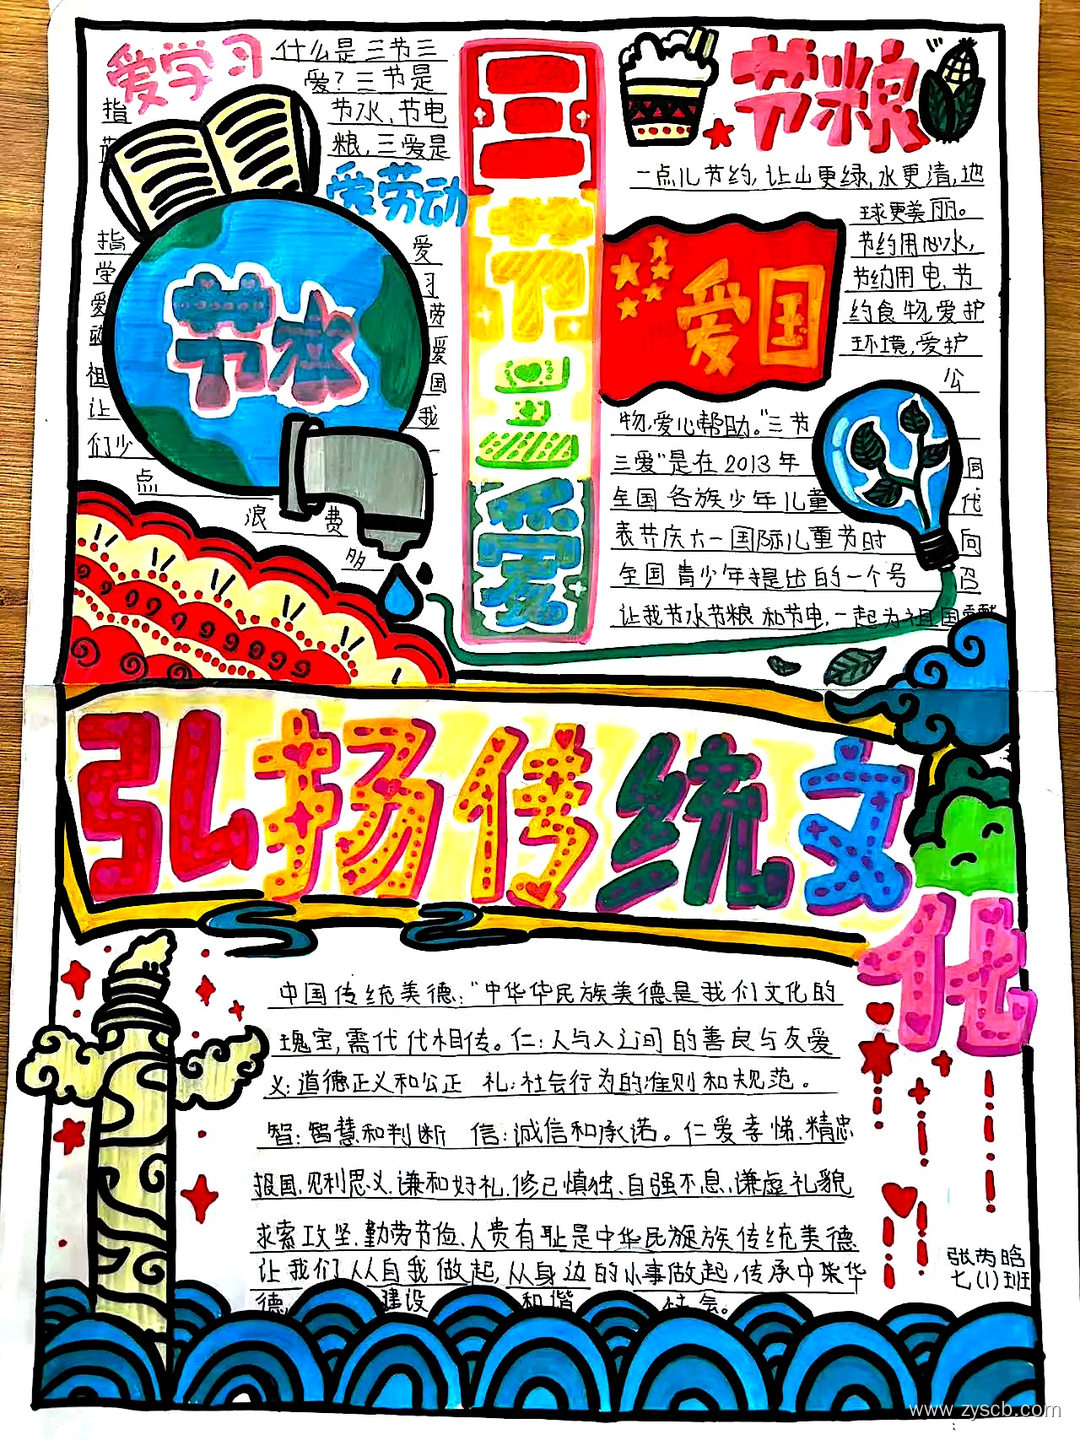 爱学习
什么是三节三
爱？三节是
指
节水、节电
节
粮，三爱是
爱劳动
指 爱
学 习
爱 劳
动 爱
祖 国
让 我
们少 一
点
浪 费
节水
三节三爱
节粮
一点儿节约，让山更绿，水更清，地
球更美丽。
节约用心水，
节约用电，节
约食物，爱护
环境，爱护
公
爱国
物，爱心帮助。“三节
三爱”是在2013年
同
全国各族少年儿童
代
表节庆六一国际儿童节时
向
全国青少年提出的一个号
召
让我节水节粮和节电，一起为祖国
弘扬传统文化
中国传统美德：“中华华民族美德是我们文化的
瑰宝，需代代相传。仁：人与人之间的善良与友爱
义：道德正义和公正 礼：社会行为的准则和规范。
智：智慧和判断 信：诚信和承诺。仁爱孝悌，精忠
报国，见利思义，谦和好礼，修己慎独，自强不息，谦虚礼貌
求索攻坚，勤劳节俭，人贵有耻是中华民族族传统美德
让我们从自我做起，从身边的小事做起，传承中华
德， 建设 和谐 社会。
七(1)班
www.zyscb.com